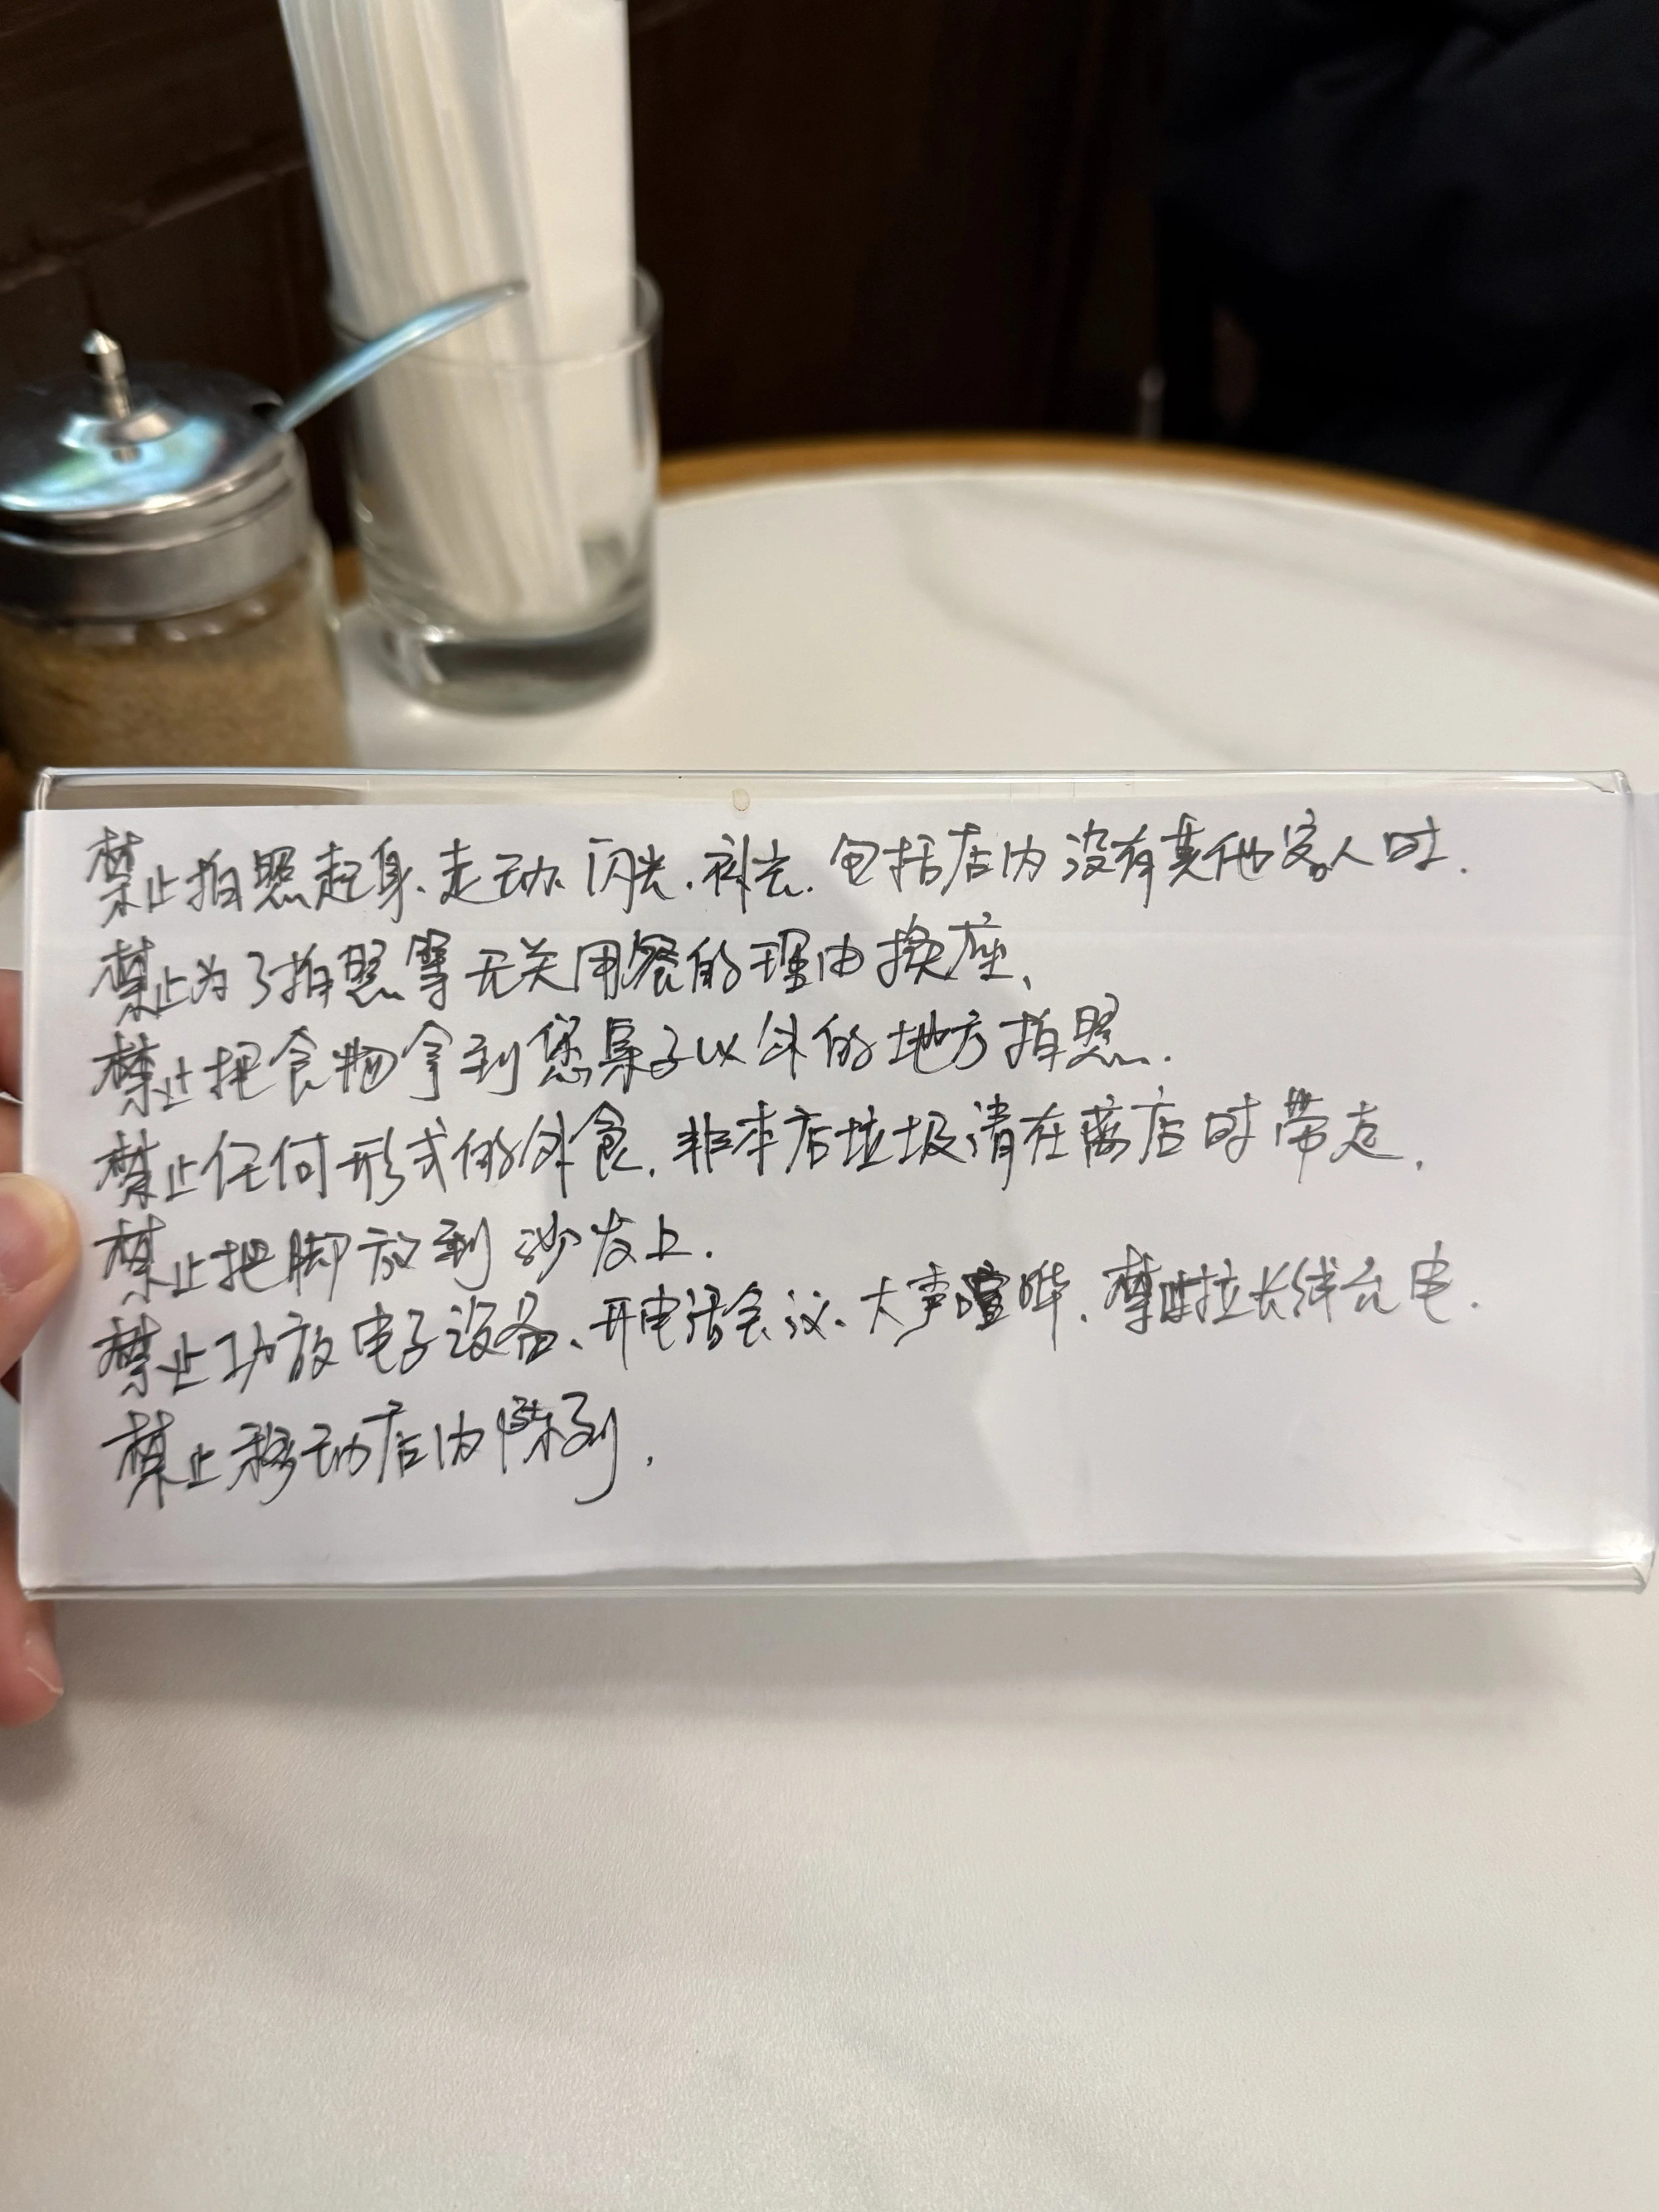 禁止拍照起身、走动、闪光、补光. 包括店内没有其他客人时.
禁止为了拍照等无关用餐的理由换座、
禁止把食物拿到您桌子以外的地方拍照.
禁止任何形式的外食. 非本店垃圾请在离店时带走.
禁止把脚放到沙发上.
禁止功放电子设备、开电话会议、大声喧哗、禁止拉长线充电.
禁止移动店内陈列.